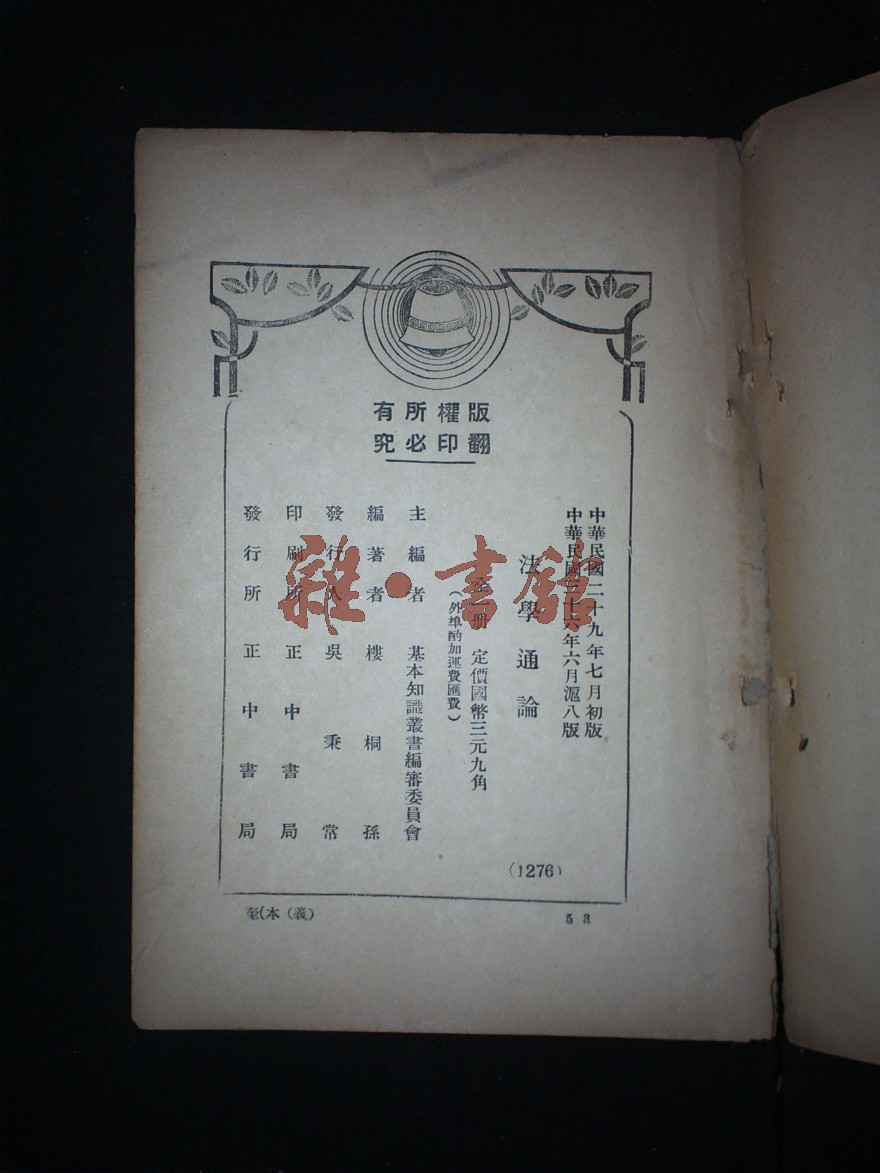 版權所有
翻印必究
中華民國二十九年七月初版
中華民國三十六年六月滬八版
法學通論
全一冊 定價國幣三元九角
（外埠酌加運費匯費）
主編者 基本知識叢書編審委員會
編著者 樓桐孫
發行人 吳秉常
印刷所 正中書局
發行所 正中書局
(1276)
雜·書館